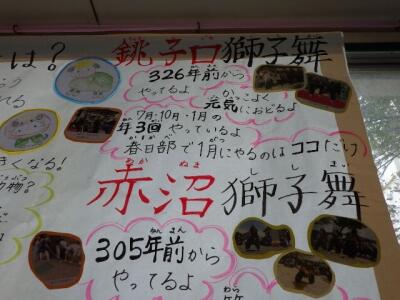 は？
銚子口獅子舞
326年前から
やってるよ
かっこよく
元気におどるよ
7月・10月・1月の
年3回やっているよ
春日部で1月にやるのはココだけ
きくなる！
物？
あか ぬま し し まい
赤沼獅子舞
305年前から
やってるよ